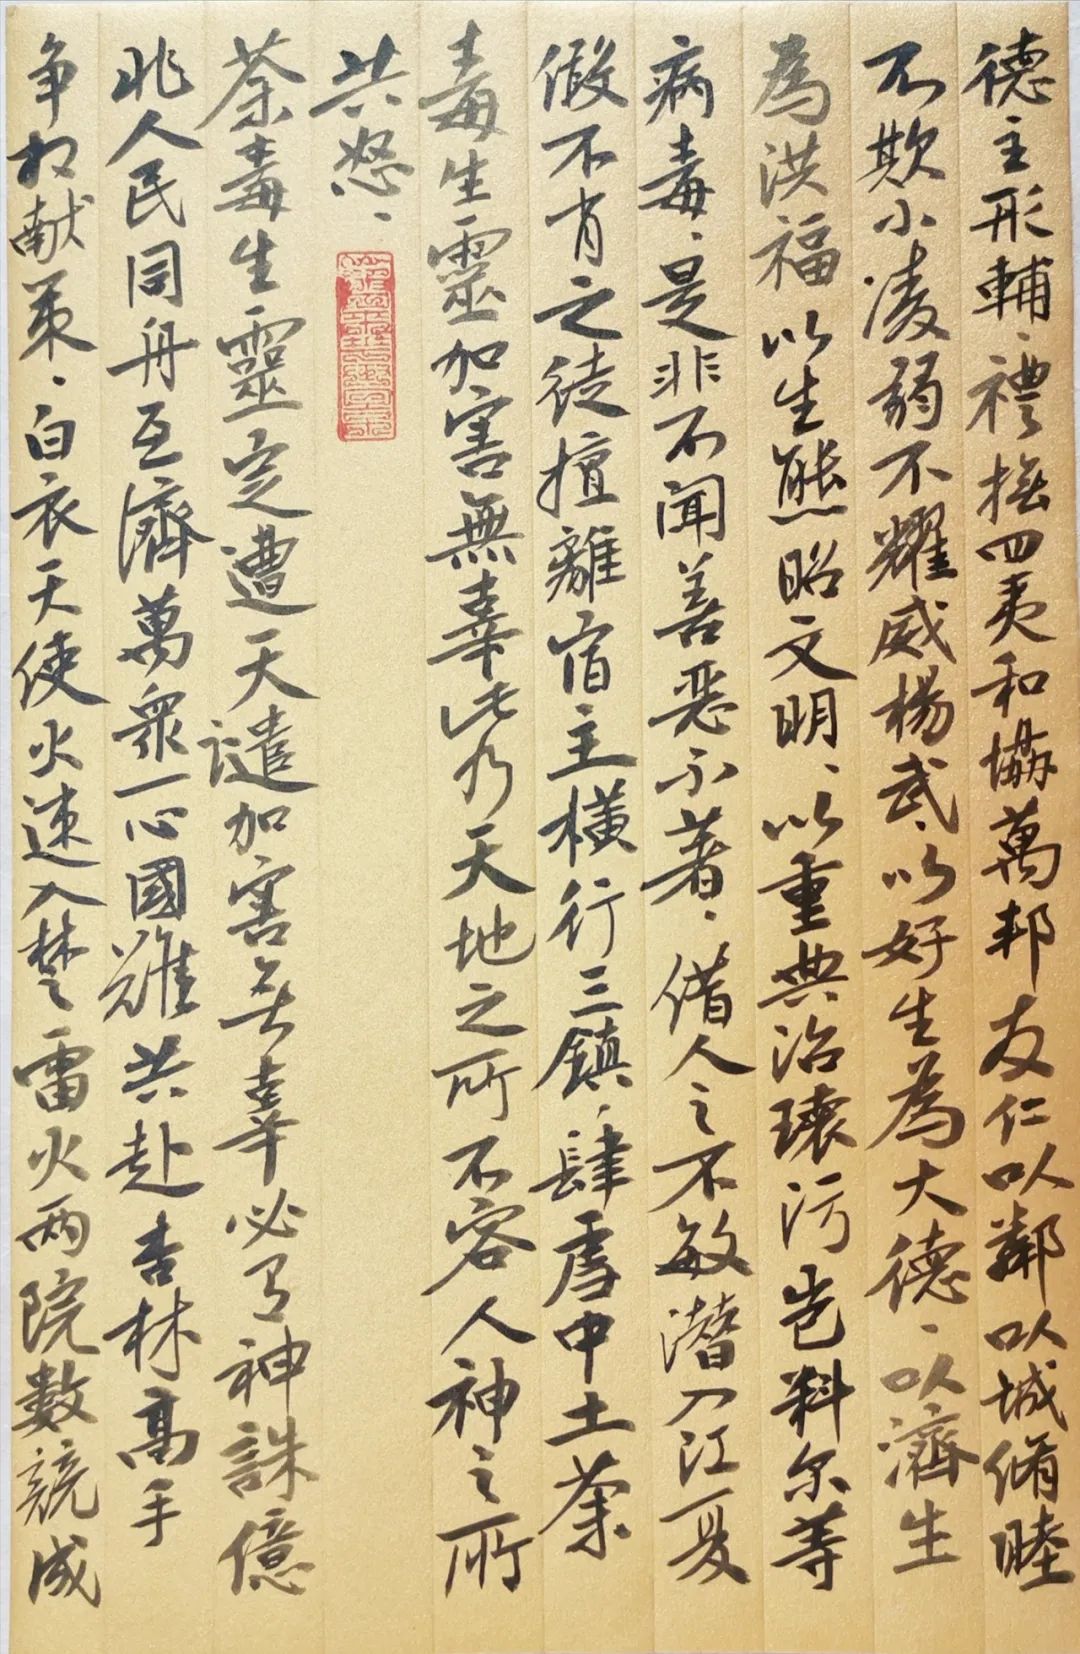 德主形輔、禮撫四夷和協萬邦友仁以鄰以城脩睦
不欺小凌弱不耀威楊武、以好生為大德、以濟生
為洪福以生態昭文明、以重典治環污岂料尔等
病毒、是非不闻善恶不著、借人之不敏潜入江夏
假不肖之徒擅離宿主横行三鎮、肆虐中土荼
毒生靈加害無辜此乃天地之所不容人神之所
共怒、
荼毒生靈定遭天谴加害无辜必有神誅億
兆人民同舟互濟萬眾一心國難共赴杏林高手
争权献策、白衣天使火速入楚雷火两院數競成